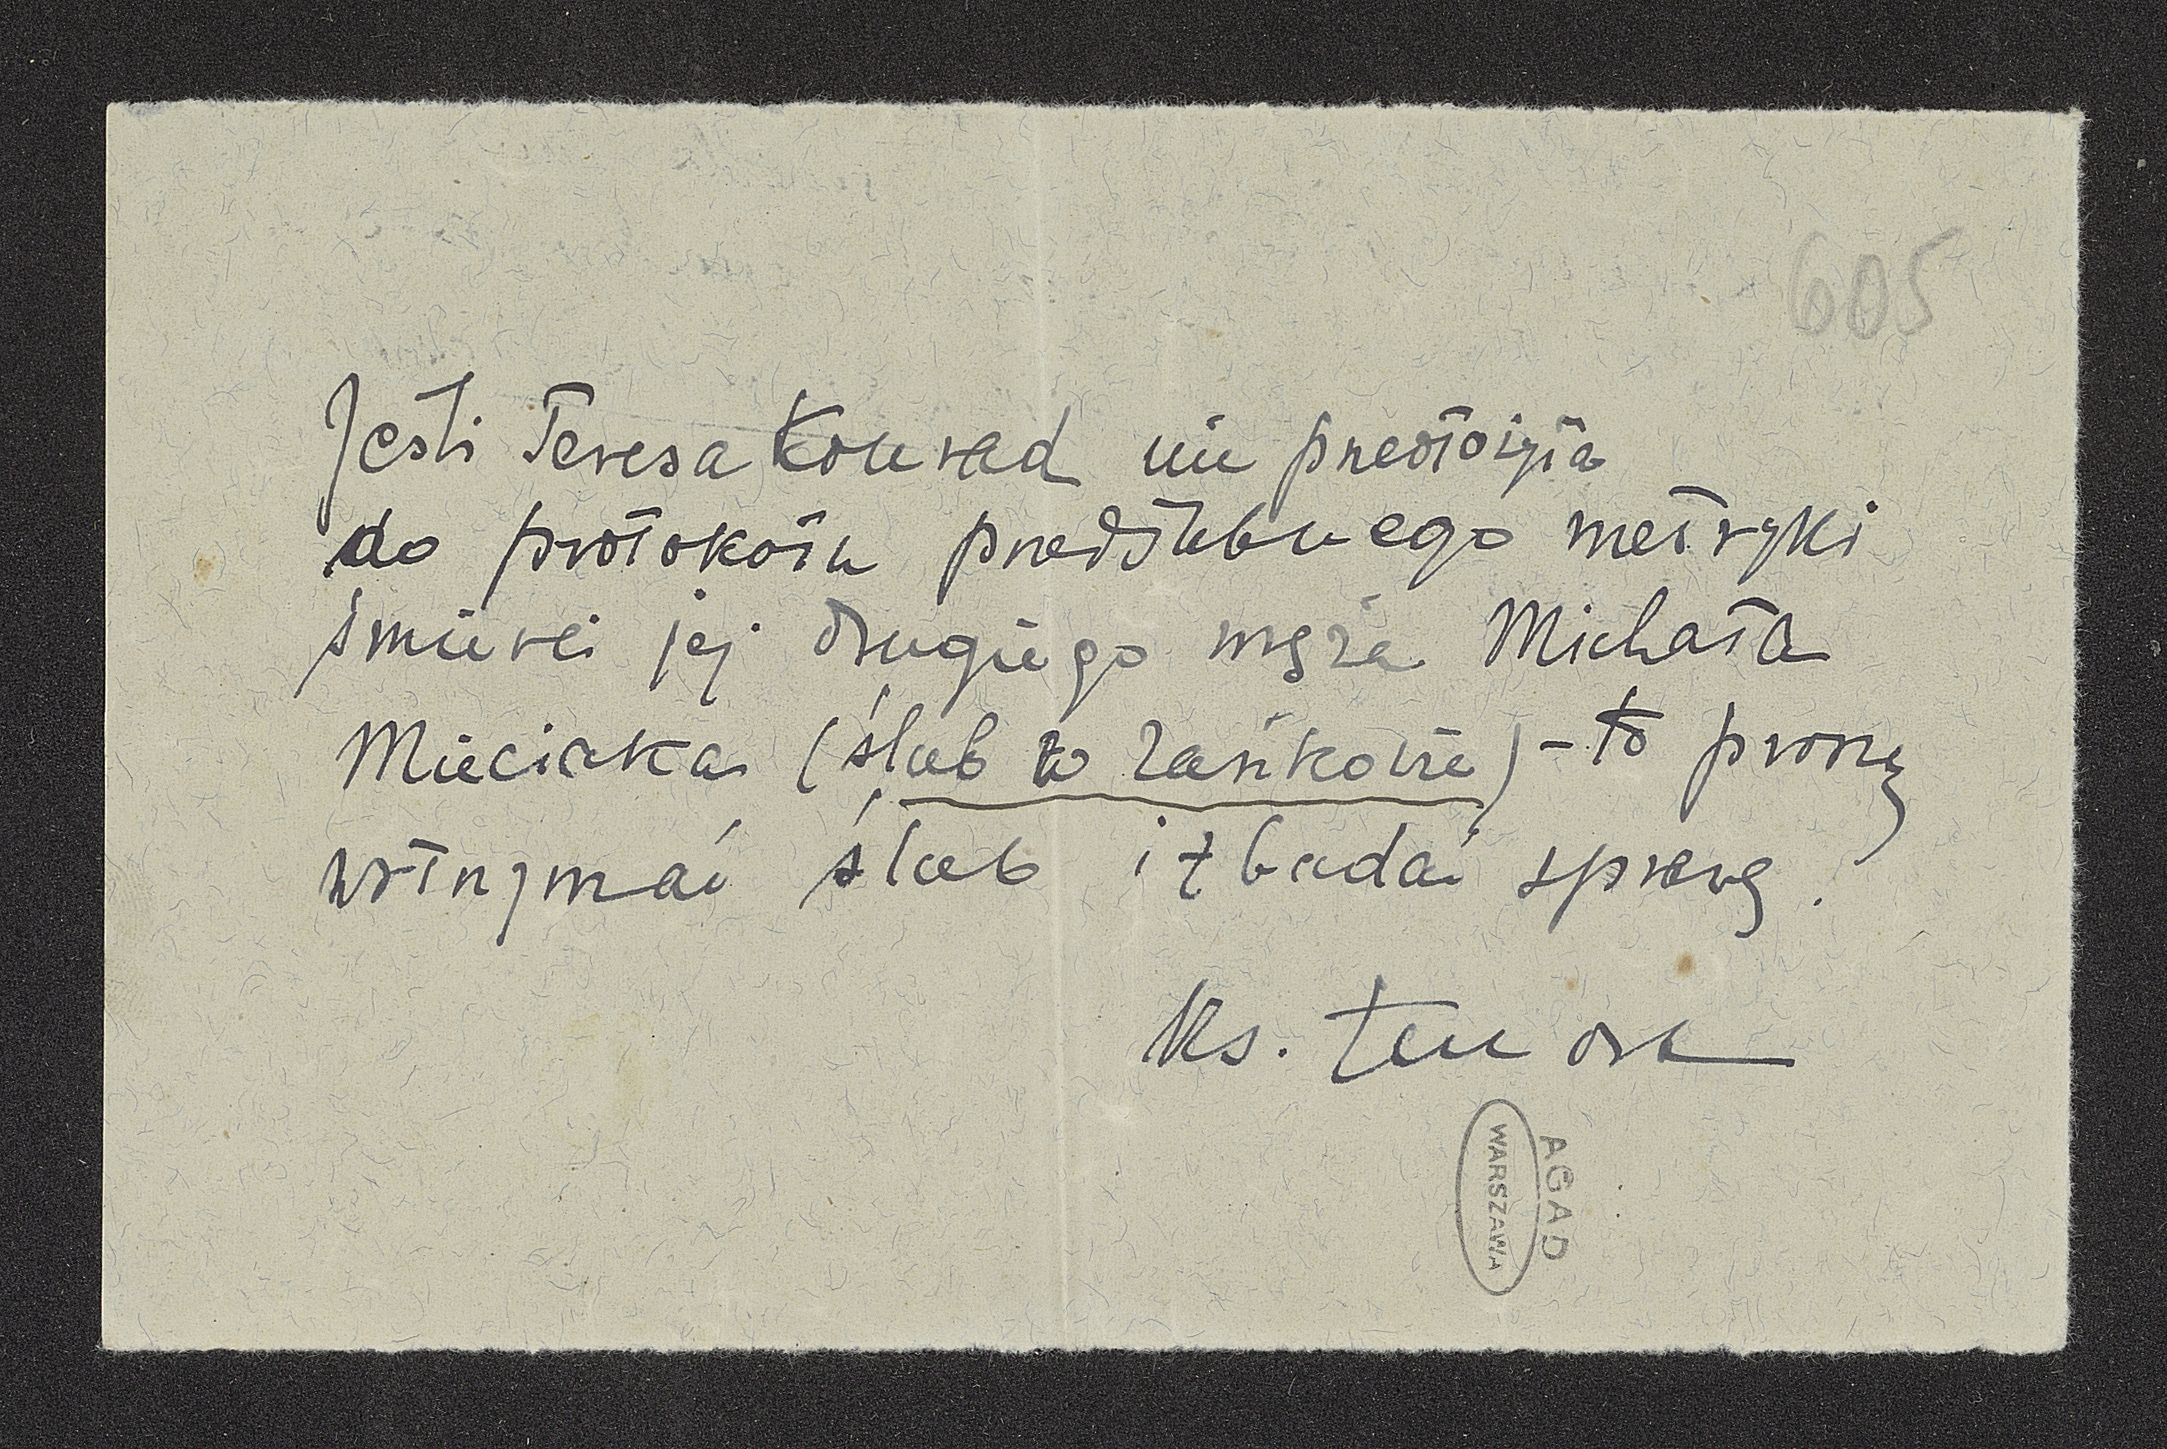 605
Jeśli Teresa Konrad nie przedłożyła
do protokołu przedślubnego metryki
śmierci jej drugiego męża Michała
Mieciszka (ślub w Zańkowie) - to proszę
wstrzymać ślub i zbadać sprawę.
Ks.
AGAD
WARSZAWA